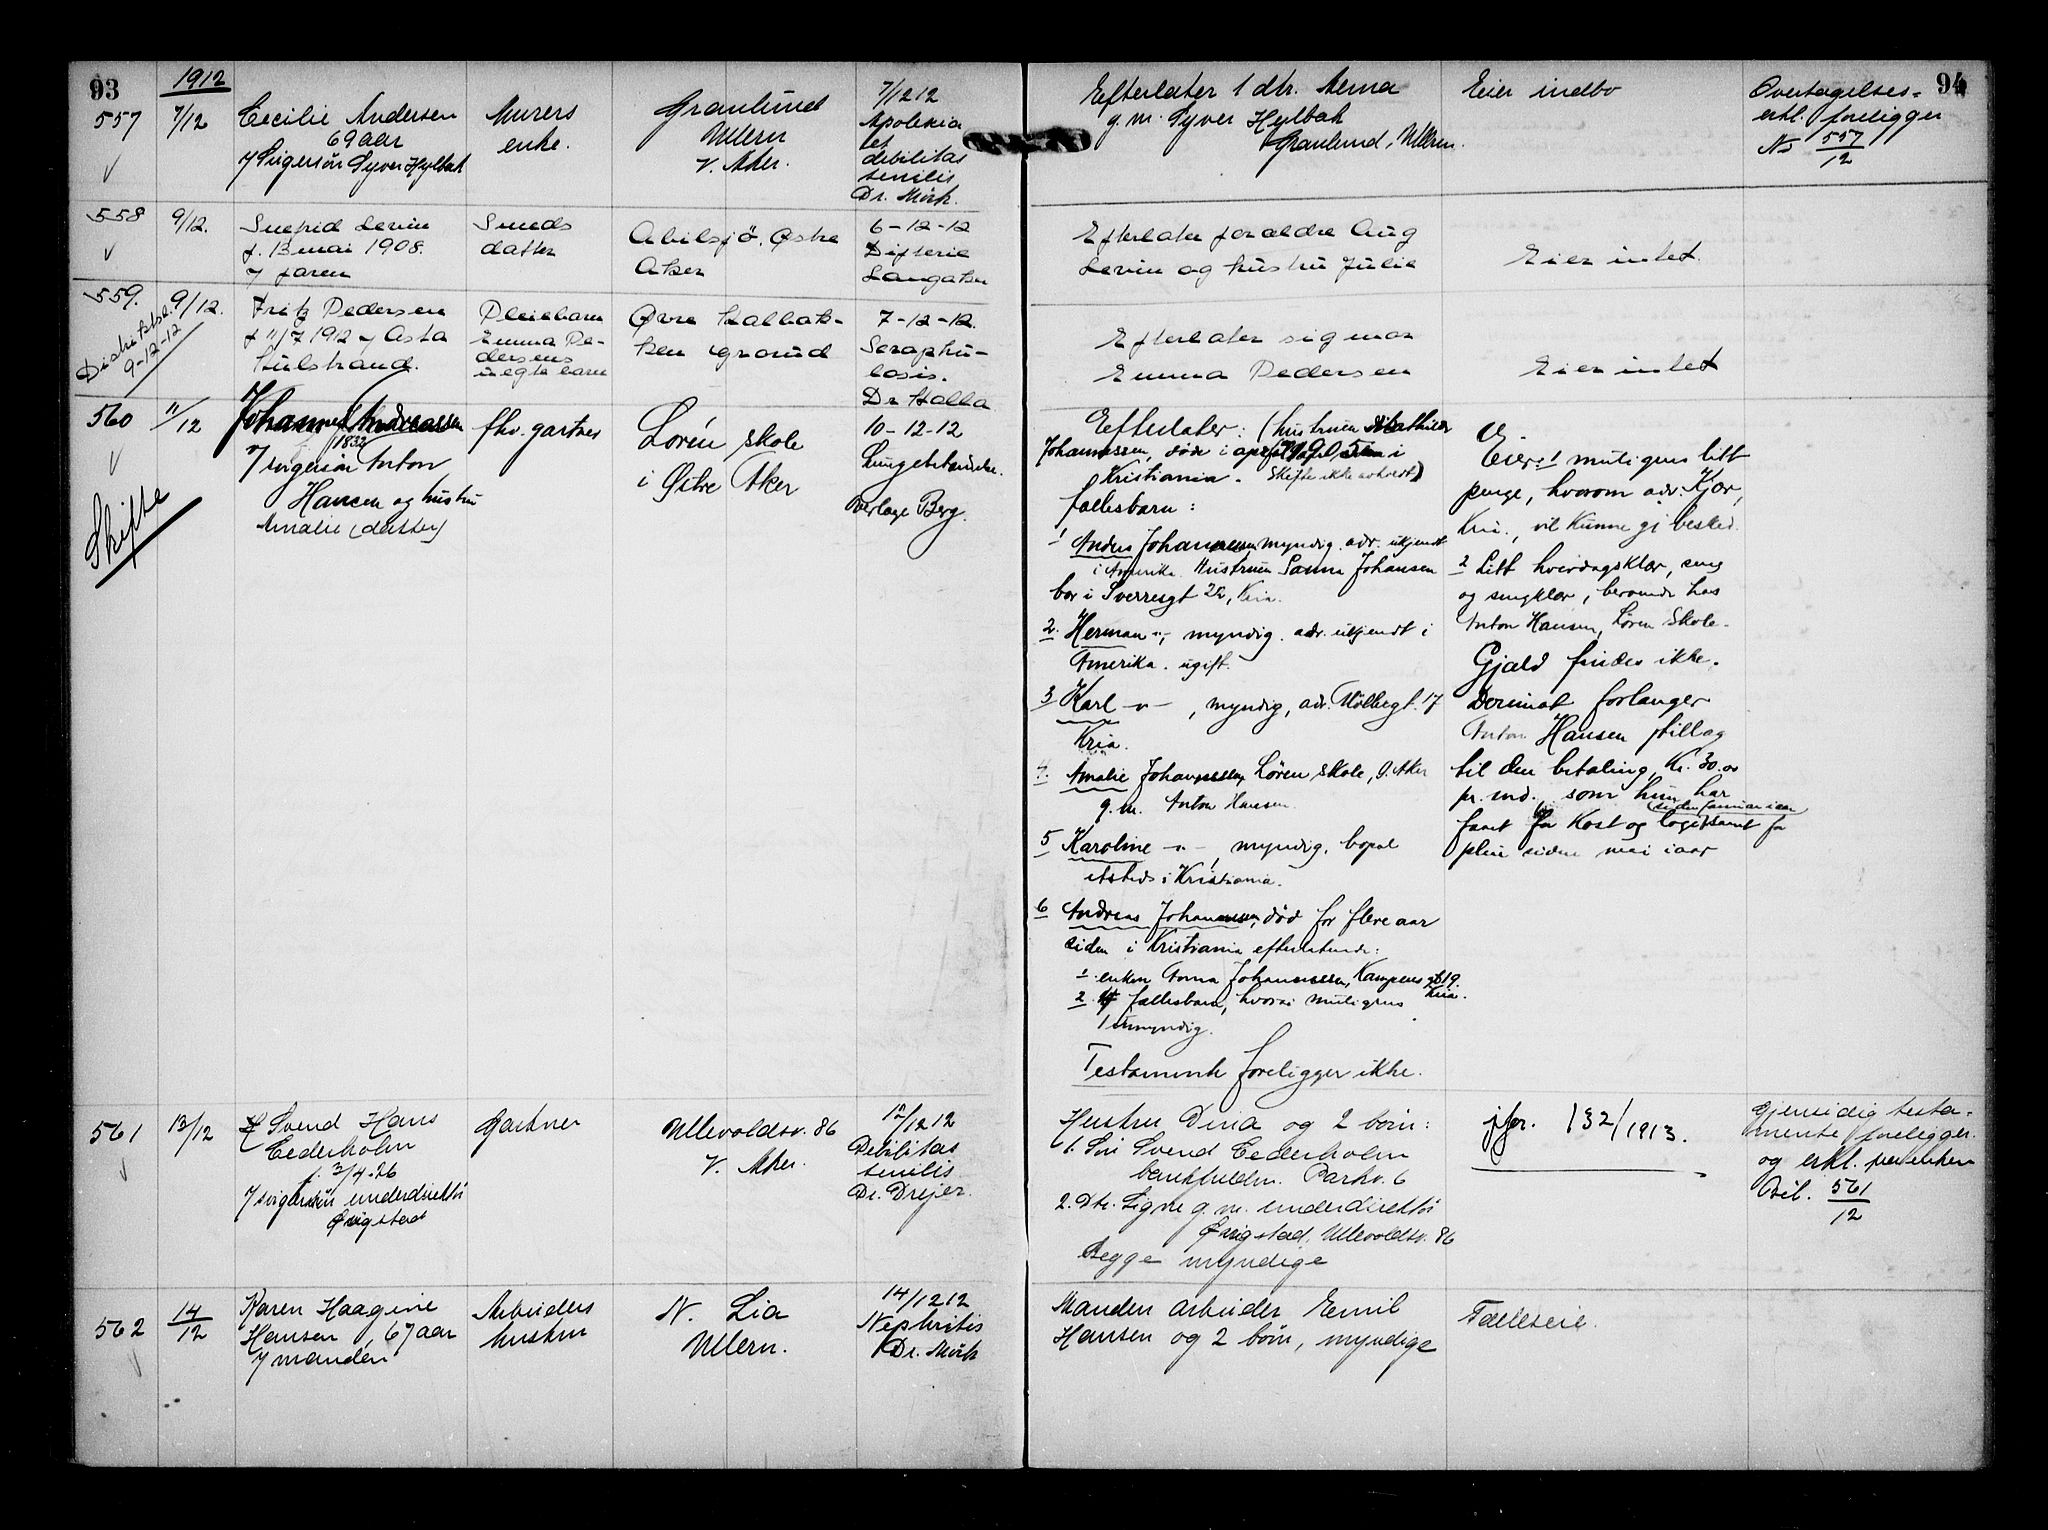 93
1912
557
7/12
Cecilie Andersen
69 aar
v/ Svigersøn Syver Hylbak
Murers
enke.
Granlund
Ullern
V. Aker.
7/12 12
Apoleksia
et
debilitas
senilis
Dr. Mörk.
Efterlater 1 dtr. Anna
g. m. Syver Hylbak
Granlund, Ullern.
Eier indbo
94
Overtagelses-
erkl. foreligger
No 557/12
558
9/12.
Snefrid Levin
f. 13 mai 1908.
v/ faren
Smeds
datter
Abilsjö, Østre
Aker
6-12-12
Difterie
Langaker
Efterlater forældre Aug
Levin og hustru Julie
Eier intet.
559.
9/12.
Distriktsk.
9-12-12
Fritz Pedersen
f 11/7 1912 v/ Asta
Hulstrand.
Pleiebarn
Emma Pe-
dersens
uegte barn
Øvre Kalbak-
ken Grorud
7-12-12.
Scrophu-
losis.
Dr Holba
Efterlater sig mor
Emma Pedersen
Eier intet
560
11/12
Skifte
Johannes Andreassen
f 1832
v/ svigersøn Anton
Hansen og hustru
Amalie (datter)
fhv. gartner
Loren skole
i Østre Aker
10-12-12
Lungebetændelse.
Overlæge Berg.
Efterlater: (hustruen Mathilde
Johannessen, døde i april
Kristiania. Skifte ikke avholdt)
fællesbarn:
1 Anders Johannessen, myndig. adr. ukjendt
i Amerika. Hustruen Sanna Johansen
bor i Sverresgt 22, Kria.
2. Herman -"-, myndig. adr. ukjendt i
Amerika. ugift.
3 Karl -"-, myndig, adr. Møllergt. 17
Kria.
4. Amalie Johannessen, Løren skole, Ø. Aker
g. m. Anton Hansen.
5 Karoline -"-, myndig, bopæl
etsteds i Kristiania.
6 Andreas Johannessen, død for flere aar
siden i Kristiania efterlatende:
1. enken Anna Johannessen, Kampens gt 19.
Kria.
2. 4 fællesbarn, hvorav muligens
1 umyndig.
Testament foreligger ikke.
Eier: 1 muligens litt
penge, hvorom adv. Kjær,
Kria., vil kunne gi besked.
2 Litt hverdagsklær, seng
og sengklær, beroende hos
Anton Hansen, Løren Skole.
Gjæld findes ikke.
Derimot forlanger
Anton Hansen tillæg
til den betaling, Kr. 30.00
pr. md., som hun har
(siden januar iaar)
faaet for Kost og logi samt for
pleie siden mai iaar
561
13/12
Svend Hans
Cederholm
f. 3/4-26
v/ svigersøn underdirektør
Øvigstad
Gartner
Ullevoldsv. 86
V. Aker.
12/12 12
Debilitas
senilis
Dr. Drejer.
Hustru Dina og 2 børn:
1. Søn Svend Cederholm
bankfuldm. Parkv. 6
2. Dtr. Signe g. m. underdirektør
Øvigstad, Ullevoldsv. 86
Begge myndige
jfr. 132/1913.
Gjensidig testa-
mente foreligger.
og erkl. fra enken
Bil. 561/12
562
14/12
Karen Haagine
Hansen, 67 aar
v/ manden
Arbeiders
hustru
N. Lia
Ullern.
14/12 12
Nephritis
Dr. Mörk
Manden arbeider Emil
Hansen og 2 børn, myndige
Fælleseie.